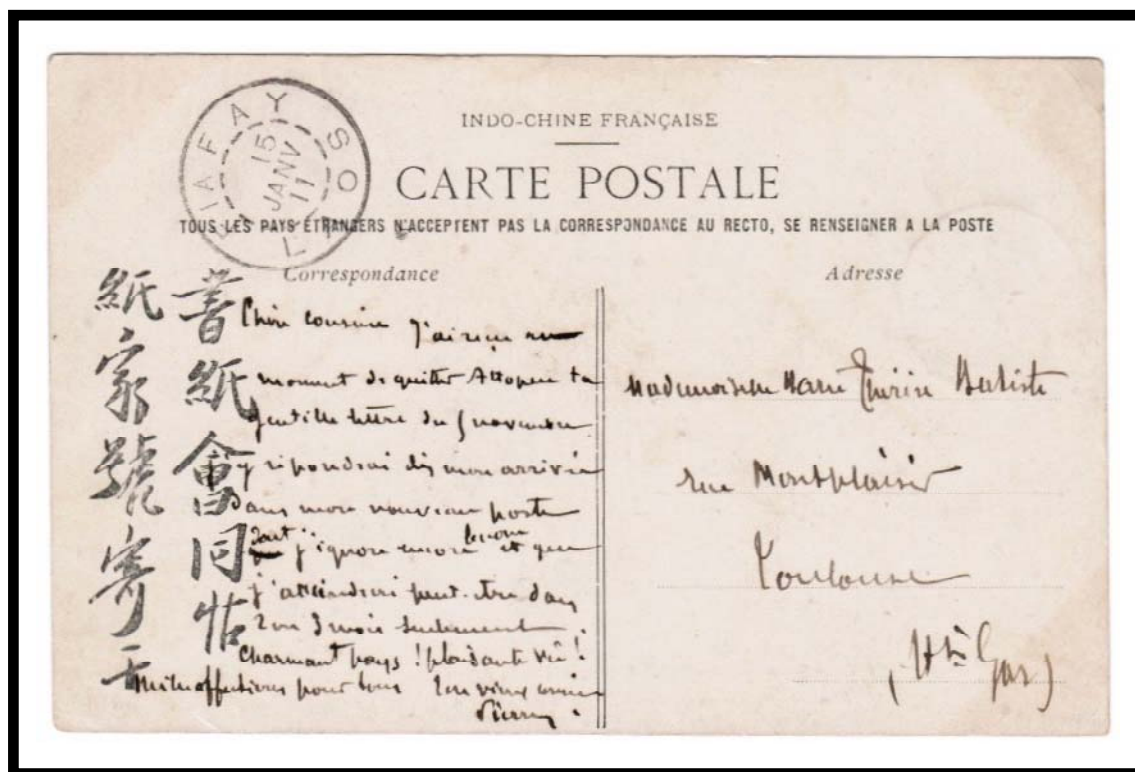 15
JANV
11
INDO-CHINE FRANÇAISE
CARTE POSTALE
TOUS LES PAYS ÉTRANGERS N'ACCEPTENT PAS LA CORRESPONDANCE AU RECTO, SE RENSEIGNER A LA POSTE
Correspondance
書紙會同帖
紙家號寄
Chère cousine J'ai reçu au
moment de quitter Attopeu ta
gentille lettre du 5 novembre
y répondrai dès mon arrivée
dans mon nouveau poste
dont j'ignore encore le nom et que
j'atteindrai peut-être dans
2 ou 3 mois seulement.
Charmant pays ! plaisante vie !
Mille affections pour tous Ton vieux
Pierre.
Adresse
Mademoiselle Marie Thérèse Batiste
rue Montplaisir
Toulouse
(Hte Gar)